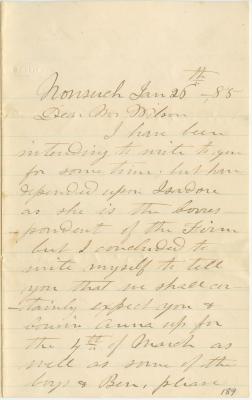 Nonsuch Jan 25th -, 85
Dear Mr Wilson
I have been
intending to write to you
for some time, but have
depended upon Isadore
as she is the corres
pondent of the Firm
but I concluded to
write myself to tell
you that we shall cer
tainly expect you &
cousin Anna up for
the 4th of March as
well as some of the
boys & Ben, please
189